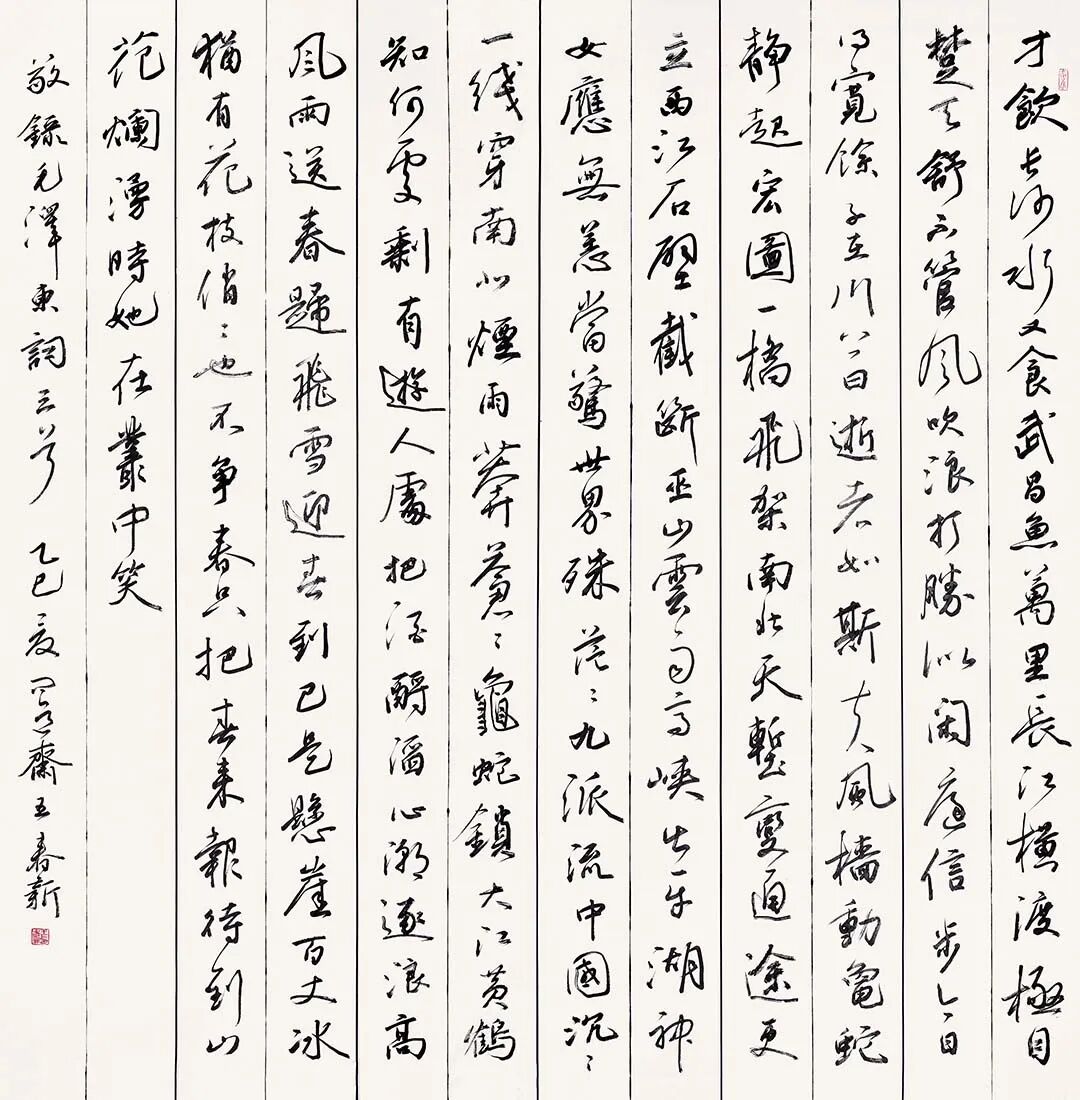 才飲長沙水又食武昌魚萬里長江橫渡極目
楚天舒不管風吹浪打勝似閑庭信步今日
得寬餘子在川上曰逝者如斯夫風檣動龜蛇
靜起宏圖一橋飛架南北天塹變通途更
立西江石壁截斷巫山雲雨高峽出平湖神
女應無恙當驚世界殊茫〻九派流中國沉〻
一綫穿南北煙雨莽蒼〻龜蛇鎖大江黃鶴
知何處剩有遊人處把酒酹滔心潮逐浪高
風雨送春歸飛雪迎春到已是懸崖百丈冰
猶有花枝俏〻也不爭春只把春來報待到山
花爛漫時她在叢中笑
敬錄毛澤東詞三首 乙巳夏 齋王春新